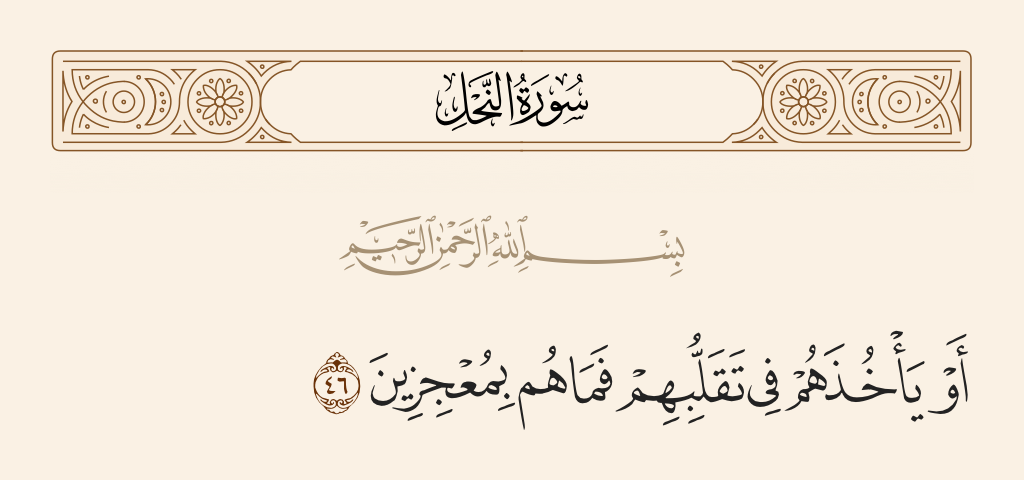 سُورَةُ النَّحْلِ
بِسْمِ ٱللَّهِ ٱلرَّحْمَٰنِ ٱلرَّحِيمِ
أَوْ يَأْخُذَهُمْ فِى تَقَلُّبِهِمْ فَمَا هُم بِمُعْجِزِينَ ٤٦